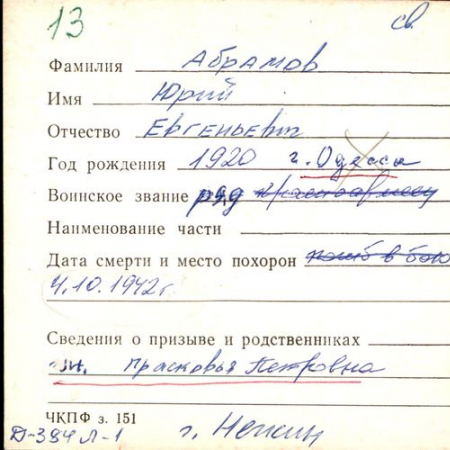 13 св.
Фамилия Абрамов
Имя Юрий
Отчество Евгеньевич
Год рождения 1920 г. Одесса
Воинское звание ряд красноармеец
Наименование части
Дата смерти и место похорон погиб в бою
4.10.1942 г.
Сведения о призыве и родственниках
Прасковья Петровна
ЧКПФ з. 151
Д-394 л-1 г. Нежин